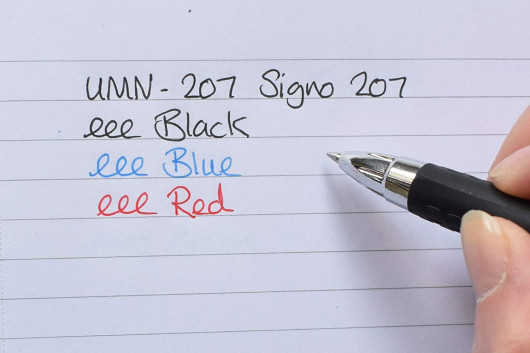 UMN - 207 Signo 207
eee Black
eee Blue
eee Red